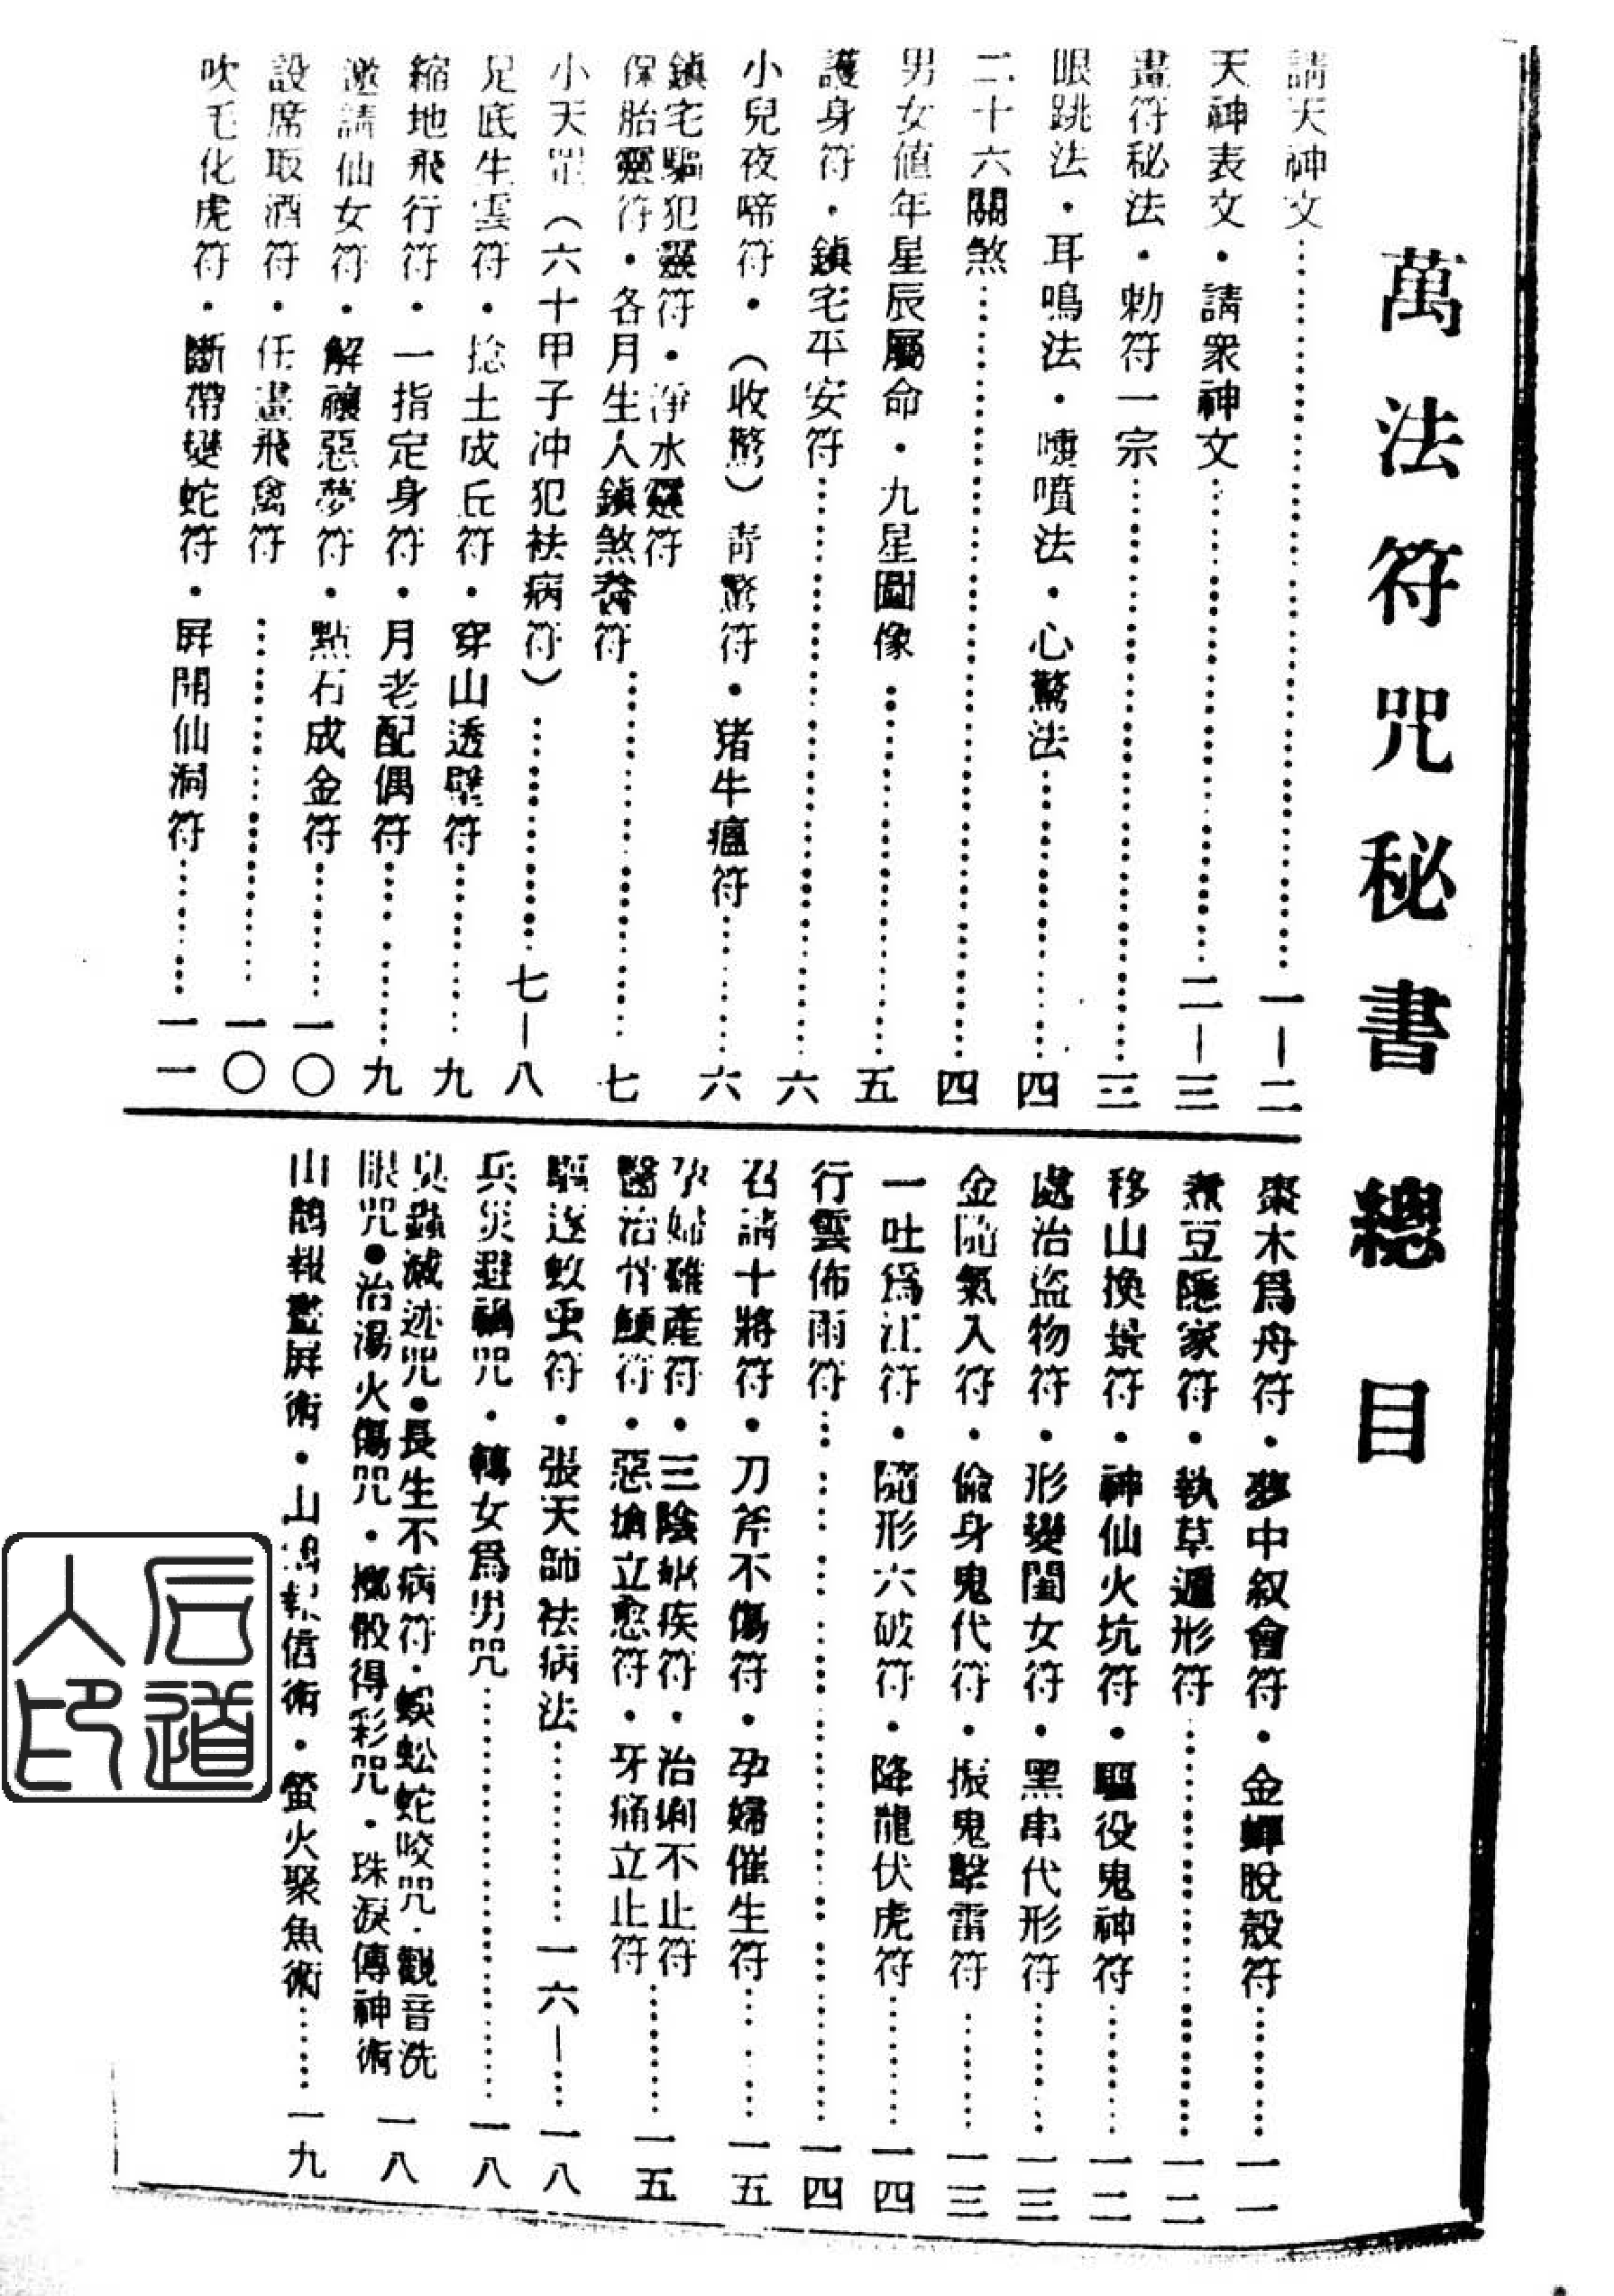 萬法符咒秘書 總目
請天神文……一—二
天神表文・請衆神文……二—三
畫符秘法・勅符一宗……三
眼跳法・耳鳴法・嚏噴法・心驚法……四
二十六關煞……四
男女值年星辰屬命・九星圖像……五
護身符・鎮宅平安符……六
小兒夜啼符・（收驚）青驚符・猪牛瘟符……六
鎮宅驅犯靈符・淨水靈符
保胎靈符・各月生人鎮煞符……七
小天罡（六十甲子冲犯袪病符）……七—八
足底生雲符・捻土成丘符・穿山透壁符……九
縮地飛行符・一指定身符・月老配偶符……九
邀請仙女符・解禳惡夢符・點石成金符……一〇
設席取酒符・任畫飛禽符……一〇
吹毛化虎符・斷帶變蛇符・屏開仙洞符……一一
棗木爲舟符・夢中叙會符・金蟬脫殼符……一一
煮豆隱家符・執草遁形符……一二
移山換景符・神仙火坑符・驅役鬼神符……一二
處治盜物符・形變閨女符・黑串代形符……一三
金隨氣入符・偷身鬼代符・振鬼擊雷符……一三
一吐爲江符・隨形六破符・降龍伏虎符……一四
行雲佈雨符……一四
召請十將符・刀斧不傷符・孕婦催生符……一五
孕婦難產符・三陰瘧疾符・治痢不止符
醫治骨鯁符・惡搶立愈符・牙痛立止符……一五
驅逐蚊虫符・張天師袪病法……一六—一八
兵災避禍咒・轉女爲男咒……一八
臭蟲滅迹咒・長生不病符・蜈蚣蛇咬咒・觀音洗
眼咒・治湯火傷咒・擲骰得彩咒・珠淚傳神術 一八
山鵲報畫屏術・山鵲報信術・螢火聚魚術……一九
后道
人印